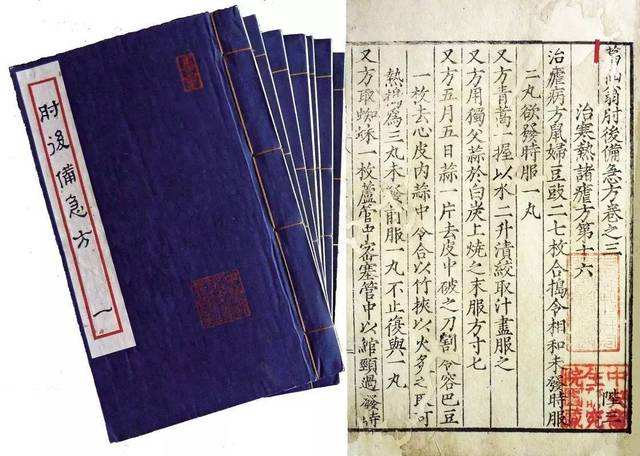 肘後備急方 一
仙翁肘後備急方卷之三
治寒熱諸瘧方第十六
治瘧病方鼠婦豆豉二七枚合搗令相和未發時服
二丸欲發時服一丸
又方青蒿一握以水二升漬絞取汁盡服之
又方用獨父蒜於白炭上燒之末服方寸七
又方五月五日蒜一片去皮中破之刀割令容巴豆
一枚去心皮內蒜中令合以竹挾以火炙之可
熱搗為三丸未發前服一丸不止復與一丸
又方取蜘蛛一枚蘆管中密塞管中以綰頸過發時